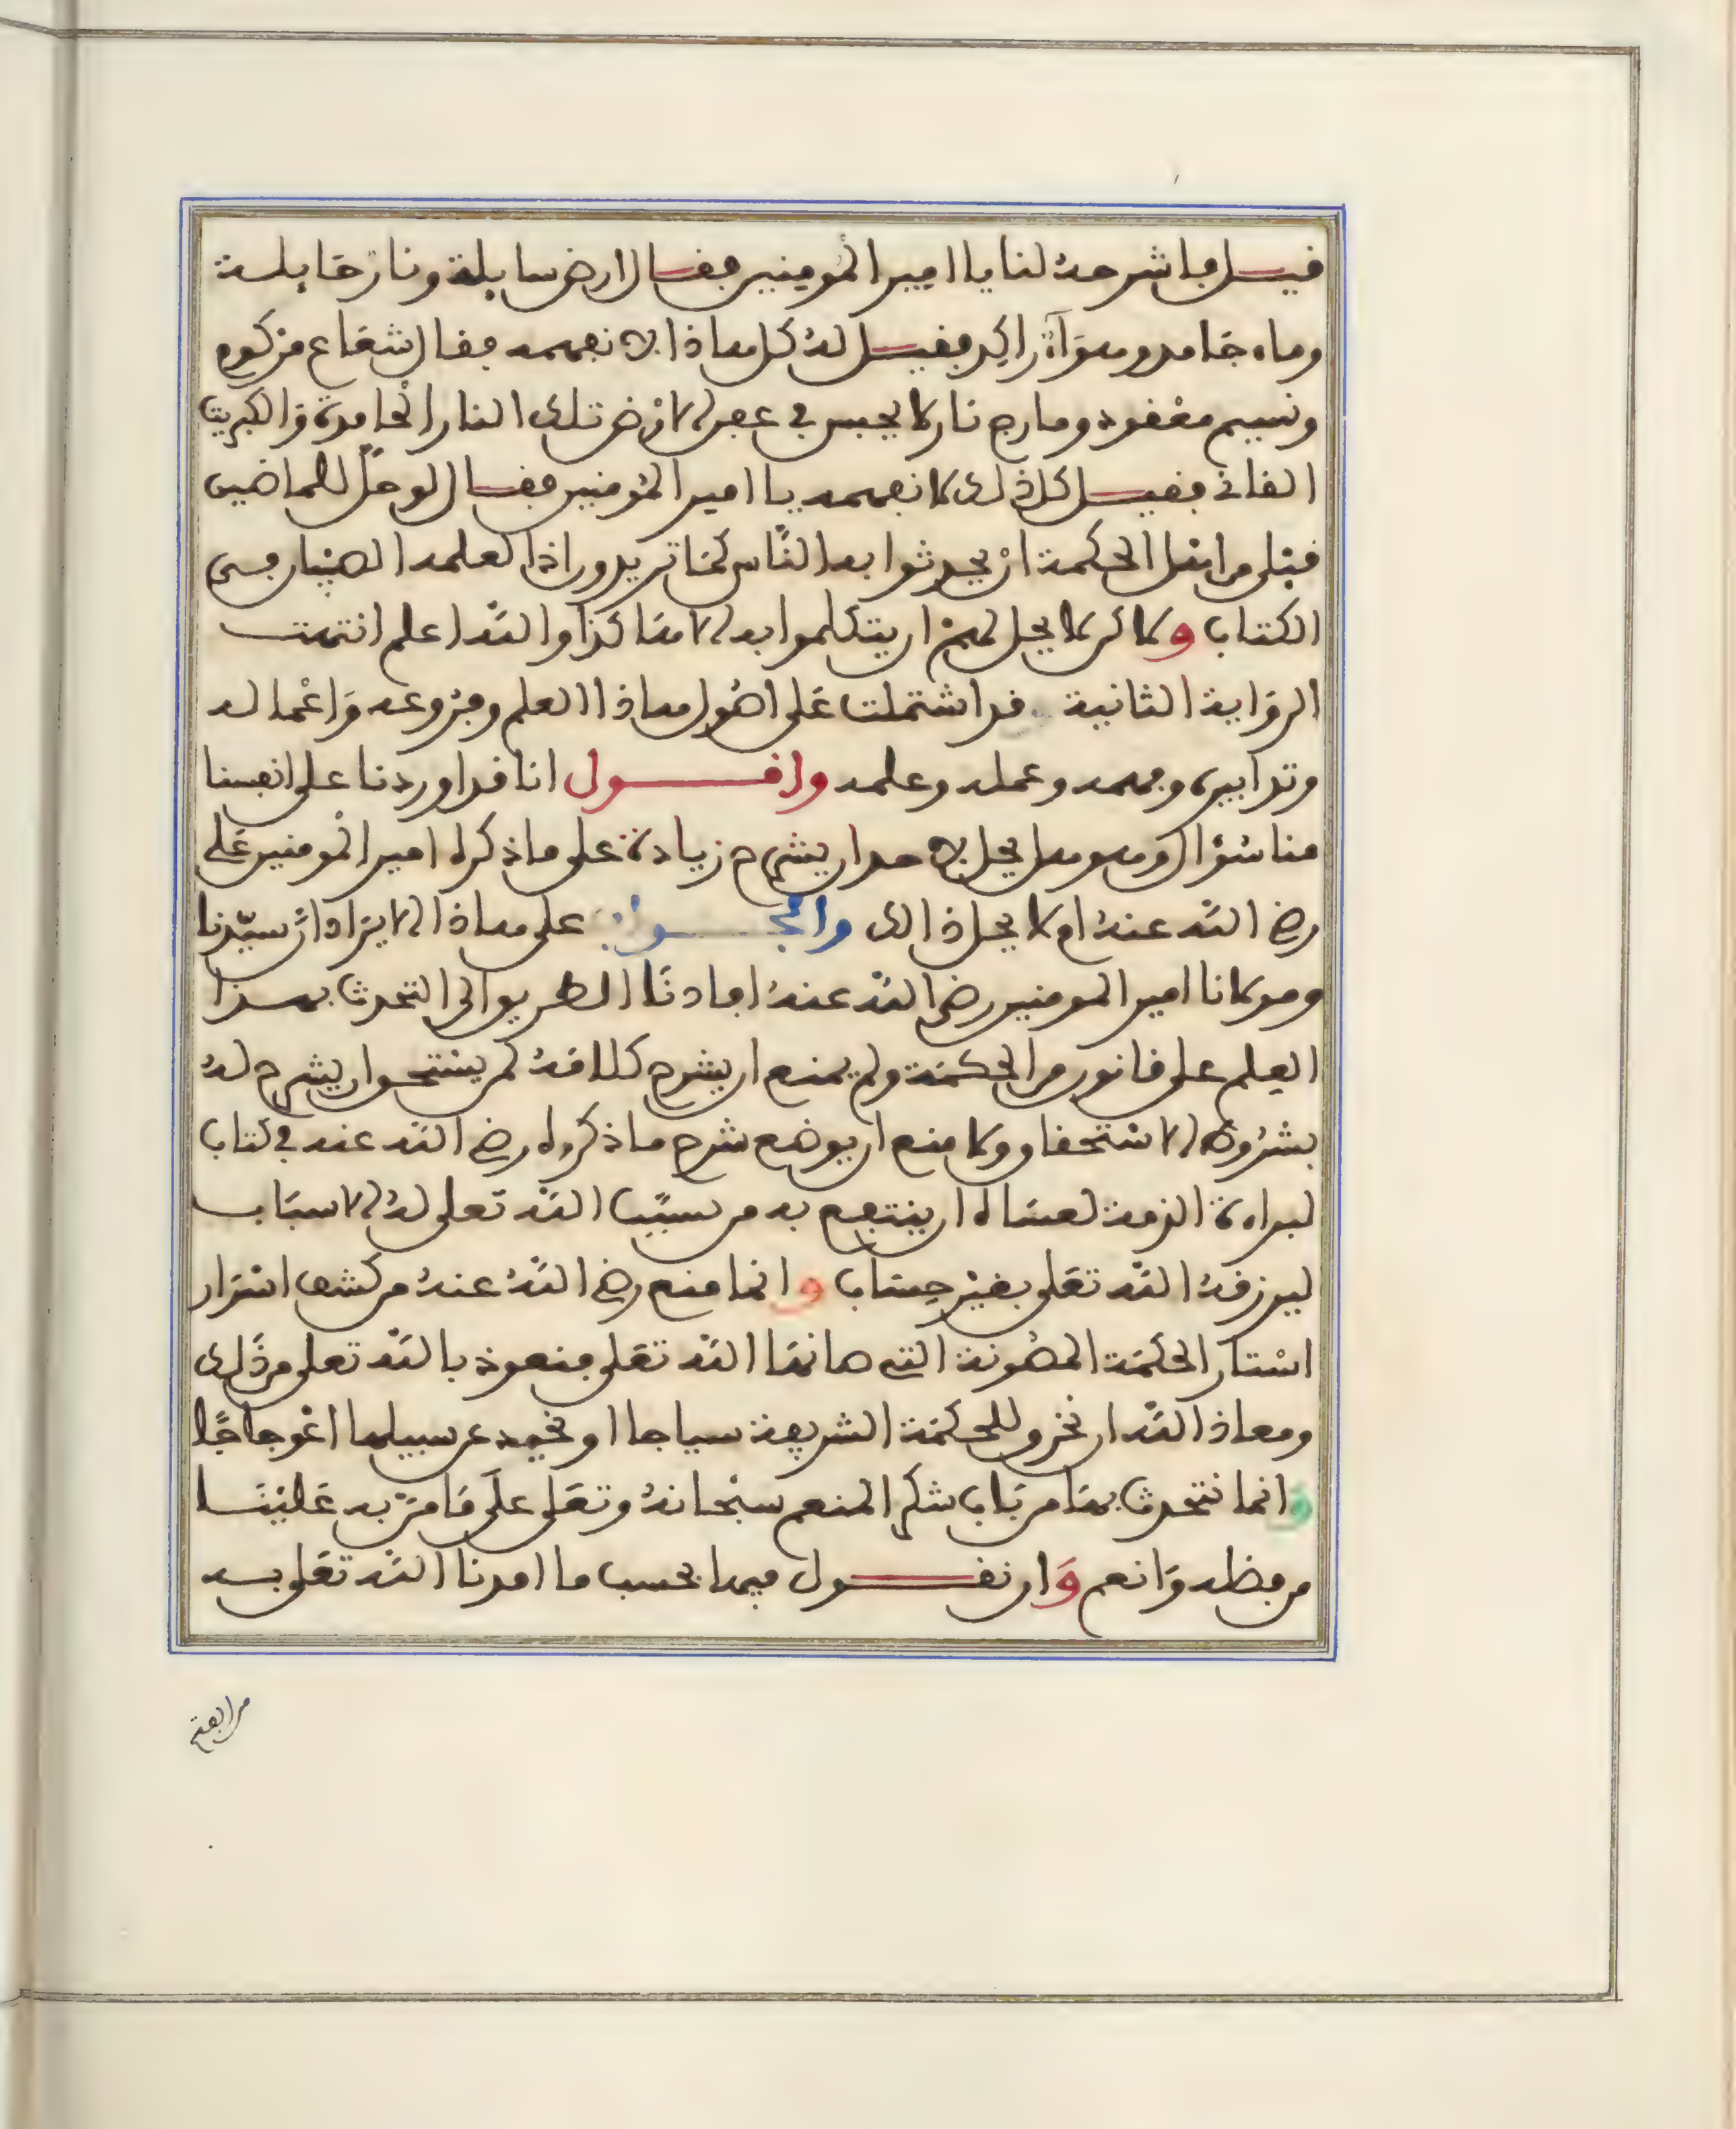 قيل باشرحه لنا يا امير المومنين فقال ارض سايلة ونار حايلة
وماء جامد وهوآء راكد فقيل له كل هاذا لا نفهمه فقال شعاع مركوم
ونسيم معقود ومارج نار لا يحبس في عصر الارض تلك النار الخامدة والكبريت
الفاني فقيل كل ذلك لا نفهمه يا امير المومنين فقال لو حل للماضين
قبلي من اهل الحكمة ان يحدثوا به الناس كما تريدون اذا لعلمه الصبيان في
الكتاب ولاكن لا يحل لهم ان يتكلموا به الا هاكذا والله اعلم انتهت
الرواية الثانية قد اشتملت على اصول هاذا العلم وفروعه واعماله
وتدابيره وفهمه وعمله وعلمه واقول انا قد اوردنا على انفسنا
هنا سؤال وهو هل يحل لاحد ان يشرح زيادة على ما ذكره امير المومنين علي
رضي الله عنه ام لا يحل ذالك والجواب على هاذا الايراد ان سيدنا
ومولانا امير المومنين رضي الله عنه افادنا الطريق الى التحدث بهذا
العلم على قانون من الحكمة ولم يمنع ان يشرح كلامه لمن يستحق ان يشرح له
بشروط الاستحقاق ولا منع ان يوضع شرح ما ذكره رضي الله عنه في كتاب
لبراءة الذمة لعساه ان ينتفع به من سبب الله تعلى له الاسباب
ليرزقه الله تعلى بغير حساب وانما منع رضي الله عنه من كشف اسرار
استار الحكمة المصونة التي صانها الله تعلى فنعوذ بالله تعلى من ذلك
ومعاذ الله ان نخرق للحكمة الشريفة سياجا او نحيد عن سبيلها اعوجاجا
وانما نتحدث بها من باب شكر المنعم سبحانه وتعلى على ما من به علينا
من فضله وانعم وان نقول فيها بحسب ما امرنا الله تعلى به